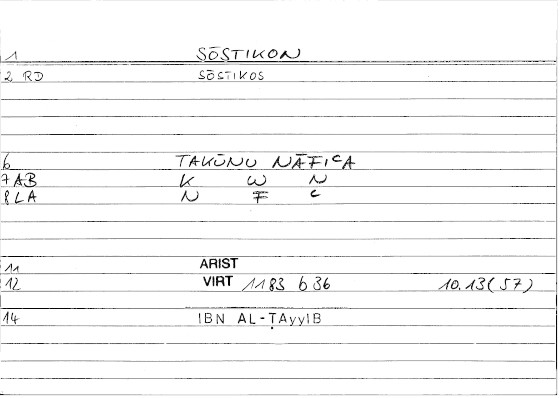 1 SŌSTIKON
2 RD SŌSTIKOS
6 TAKŪNU NĀFIᶜA
7 AB K W N
8 LA N F ᶜ
11 ARIST
12 VIRT 1183 b 36 10.13(57)
14 IBN AL-ṬAyyIB